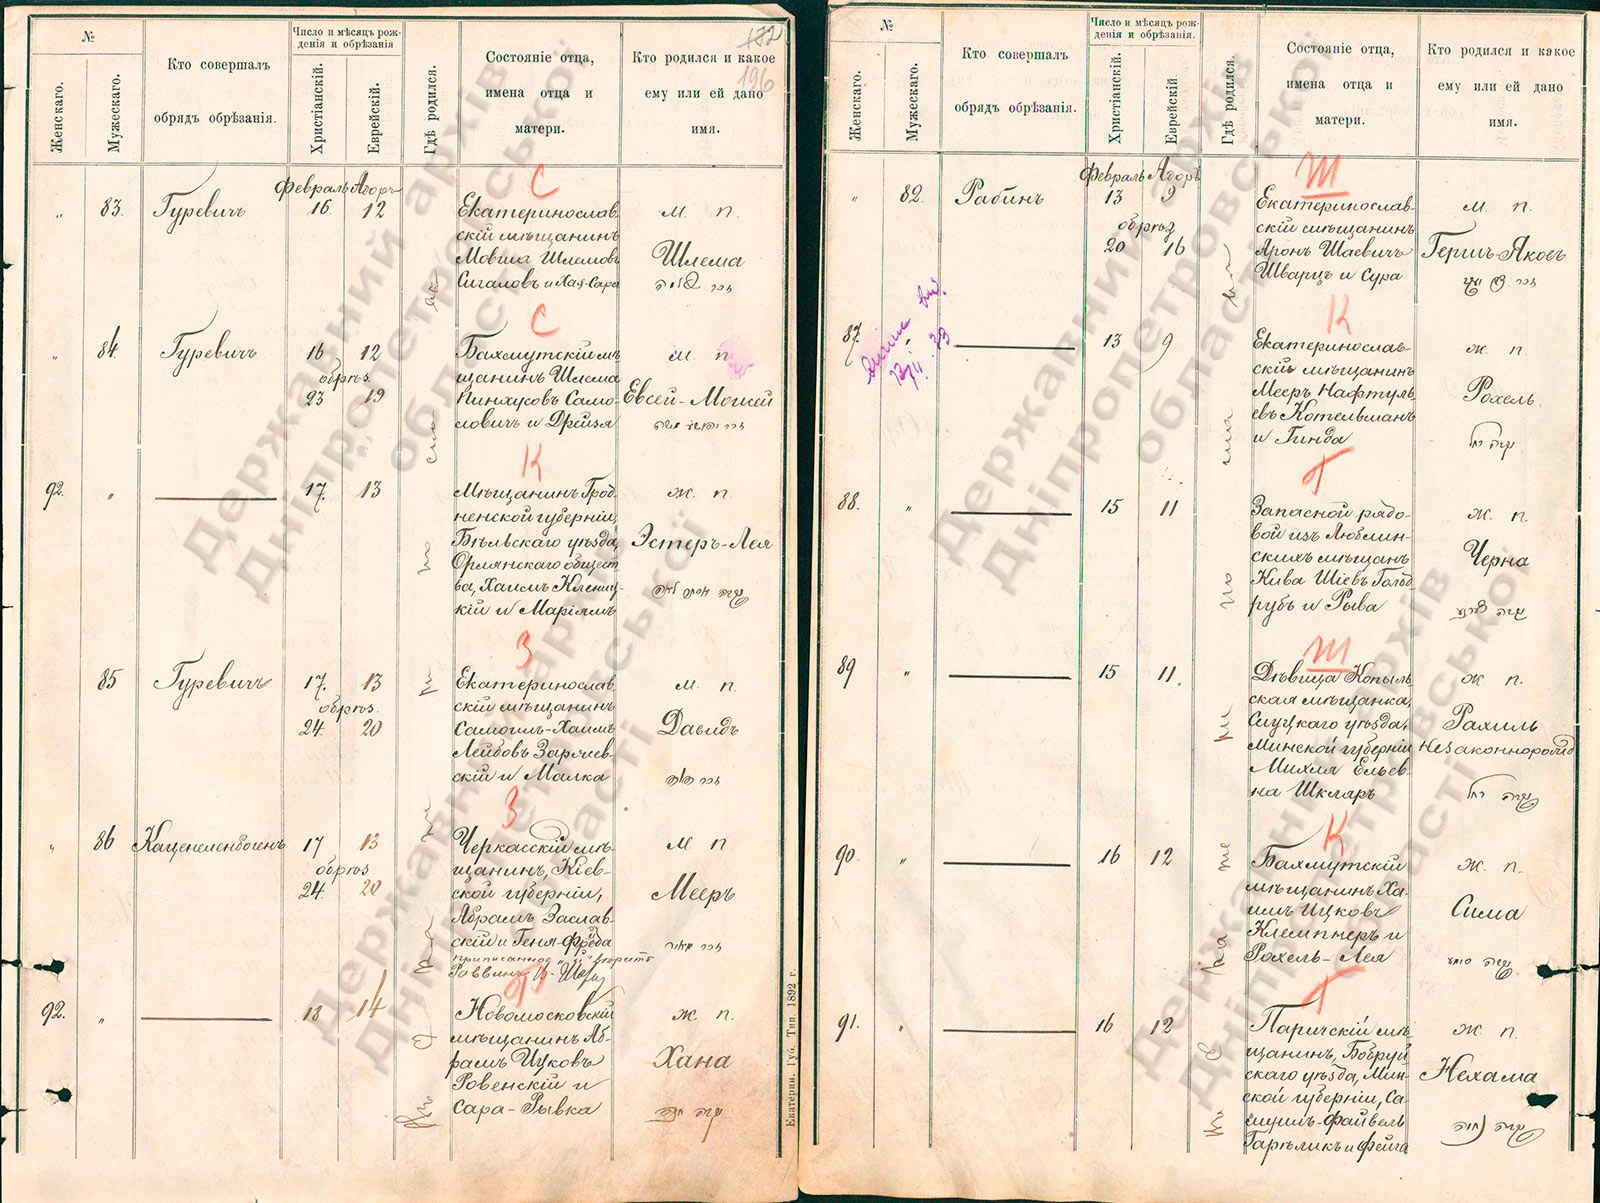 №
Женскаго.
Мужескаго.
Кто совершалъ
обрядъ обрѣзанія.
Число и мѣсяцъ рож-
денія и обрѣзанія
Христіанскій.
Еврейскій.
Гдѣ родился.
Состояніе отца,
имена отца и
матери.
Кто родился и какое
ему или ей дано
имя.
196
Февраль Адоръ
С
" 83. Гуревичъ 16 12
Екатеринослав
скій мѣщанинъ
Мовша Шлемовъ
Сигаловъ и Хая-Сара
м. п.
Шлема
С
" 84. Гуревичъ 16 12
обрѣз.
23 19
Бахмутскій мѣ
щанинъ Шлема
Пинхусовъ Само-
ловичъ и Дрейзя
м. п.
Евсей-Моисей
К
92. " 17. 13
Мѣщанинъ Грод.
ненской губерніи,
Бѣльскаго уѣзда,
Орлянскаго общест
ва, Хаимъ Кленец-
кій и Маріямъ
ж. п.
Эстеръ-Лея
З
85 Гуревичъ 17. 13
обрѣз.
24. 20
Екатеринослав
скій мѣщанинъ
Самоилъ-Хаимъ
Лейбовъ Заруев-
скій и Малка
м. п.
Давидъ
З
" 86 Каценеленбогенъ 17 13
обрѣз
24. 20
Черкасскій мѣ-
щанинъ, Кіев-
ской губерніи,
Абрамъ Заслав-
скій и Геня-Фрейда
приписанное "й" вѣрить
Раввинъ
м п.
Мееръ
92. " 18 14
Новомосковскій
мѣщанинъ Аб-
рамъ Ицковъ
Ровенскій и
Сара-Рывка
ж. п.
Хана
Екатерин. Губ. Тип. 1892 г.
№
Женскаго.
Мужескаго.
Кто совершалъ
обрядъ обрѣзанія.
Число и мѣсяцъ рож-
денія и обрѣзанія.
Христіанскій.
Еврейскій
Гдѣ родился.
Состояніе отца,
имена отца и
матери.
Кто родился и какое
ему или ей дано
имя.
Февраль Адоръ
Ш
" 82. Рабинъ 13 9
обрѣз
20 16
Екатеринослав-
скій мѣщанинъ
Аронъ Шаевичъ
Шварцъ и Сура
м. п.
Гершъ-Яковъ
К
87. 13 9
Екатеринослав-
скій мѣщанинъ
Мееръ Нафтуль-
евъ Котельманъ
и Гинда
ж. п.
Рохель.
Г
88. " 15 11
Запасной рядо-
вой изъ Люблин-
скихъ мѣщан
Кива Шіевъ Гольд
рубъ и Рыва
ж. п.
Черна
Ш
89 " 15 11.
Дѣвица Копыль
ская мѣщанка,
Слуцкаго уѣзда,
Минской губерніи
Михля Ельев-
на Шкляръ
ж п.
Рахиль
Незаконнорожд
К
90 " 16 12
Бахмутскій
мѣщанинъ Ха-
имъ Ицковъ
Клемпнеръ и
Рохель-Лея
ж. п.
Сима
Г
91. " 16 12
Паричскій мѣ
щанинъ, Бобруй
скаго уѣзда, Мин-
ской губерніи, Са-
муилъ-Файвель
Гарѣликъ и Фейга
ж. п.
Нехама
Державний архів
Дніпропетровської
області